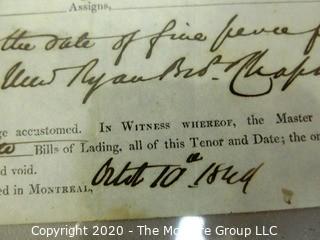 Assigns,
the date of five pence
Ryan Bros. Chap
ge accustomed. IN WITNESS WHEREOF, the Master
to Bills of Lading, all of this Tenor and Date; the on
d void.
ed in MONTREAL, Octr 10th 1849
Copyright © 2020 - The Morse Group LLC